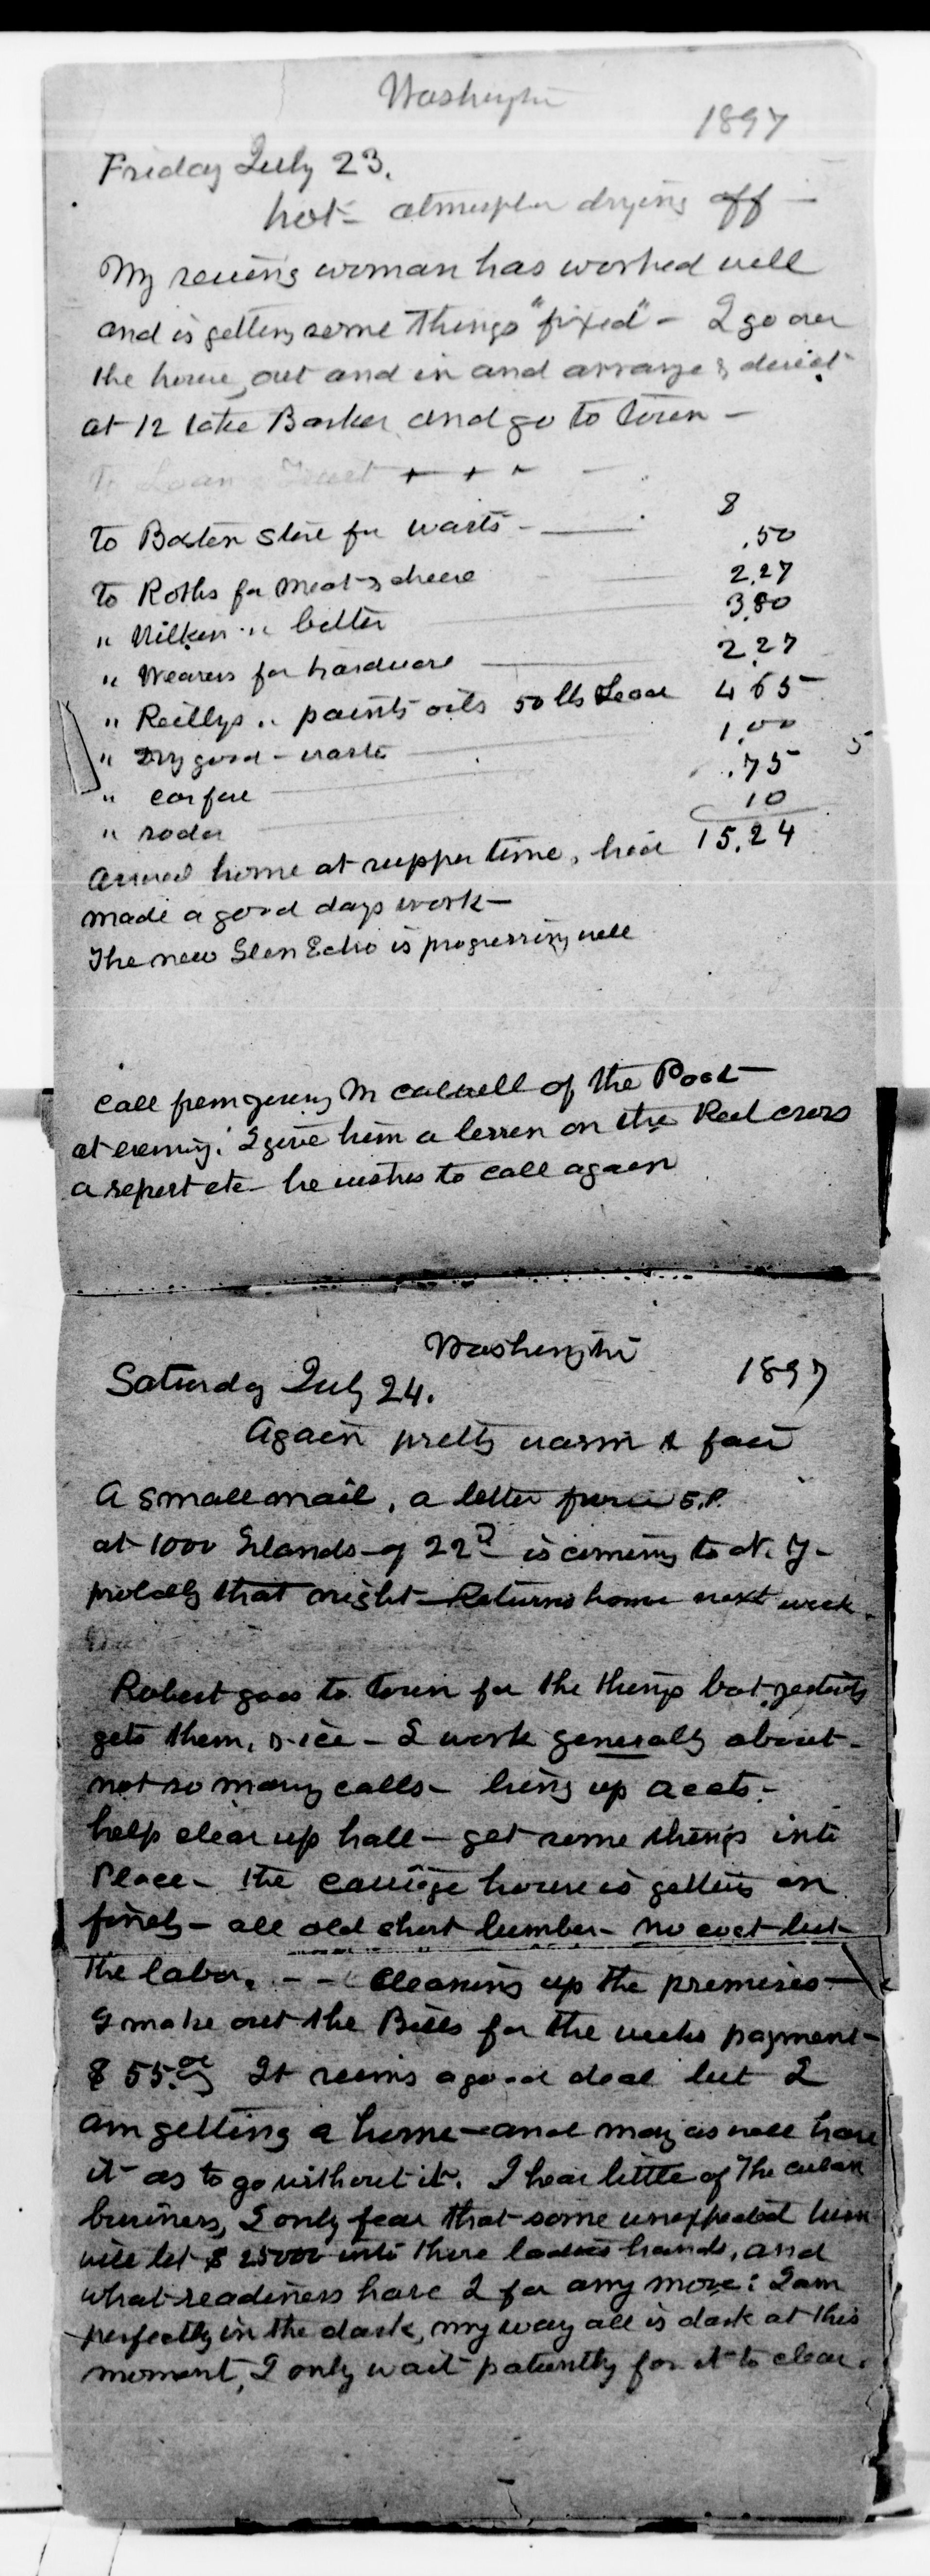 Washington
1897
Friday July 23.
hot - atmosphere drying off -
My sewing woman has worked well
and is getting some things "fixed" - I go over
the house, out and in and arrange & direct
at 12 take Barker and go to town -
To Loan & Trust + + + -
8
To Boston Store for waists - .50
To Roths for meat & cheese 2.27
" Wilkin " butter 3.80
" Weavers for hardware 2.27
" Reillys " paints oils 50 lbs Lead 4 65
" Dry good - waists 1.00
5
" carfare .75
" soda 10
Arrived home at supper time, had 15.24
made a good days work -
The new Glen Echo is progressing well
Call from M Caldwell of the Post -
at evening. I give him a lesson on the Red cross
a report etc - he wishes to call again
Washington
1897
Saturday July 24.
Again pretty warm & fair
A small mail, a letter from
at 1000 Islands - of 22d - is coming to N. Y -
probably that night - Returns home next week.
Robert goes to town for the things bot yesterday
gets them, & ice - I work generally about -
not so many calls - bring up accts. -
help clear up hall - get some things into
Place - the carriage house is getting on
finely - all old short lumber - no cost but
the labor. - - Cleaning up the premises -
I make out the Bills for the weeks payment -
$ 55.00 It seems a good deal but I
am getting a home - and may as well have
it as to go without it. I hear little of The cuban
business, I only fear that some unexpected turn
will let $ 25000 into those ladies hands, and
what readiness have I for any more: I am
perfectly in the dark, my way all is dark at this
moment, I only wait patiently for it to clear.